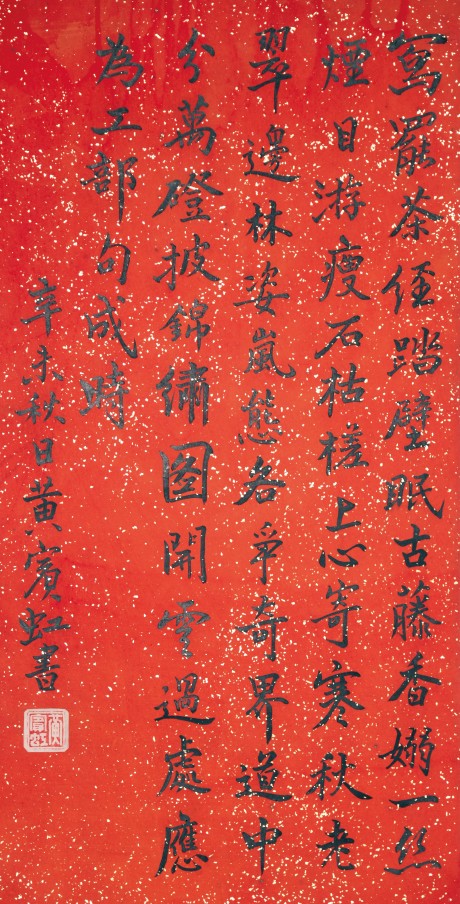 寫罷茶經踏壁眠古藤香嫋一絲
煙目游瘦石枯槎上心寄寒秋老
翠邊林姿嵐態各爭奇界道中
分萬磴披錦繡圖開雲過處應
為工部句成時
辛未秋日黃賓虹書
黃賓虹